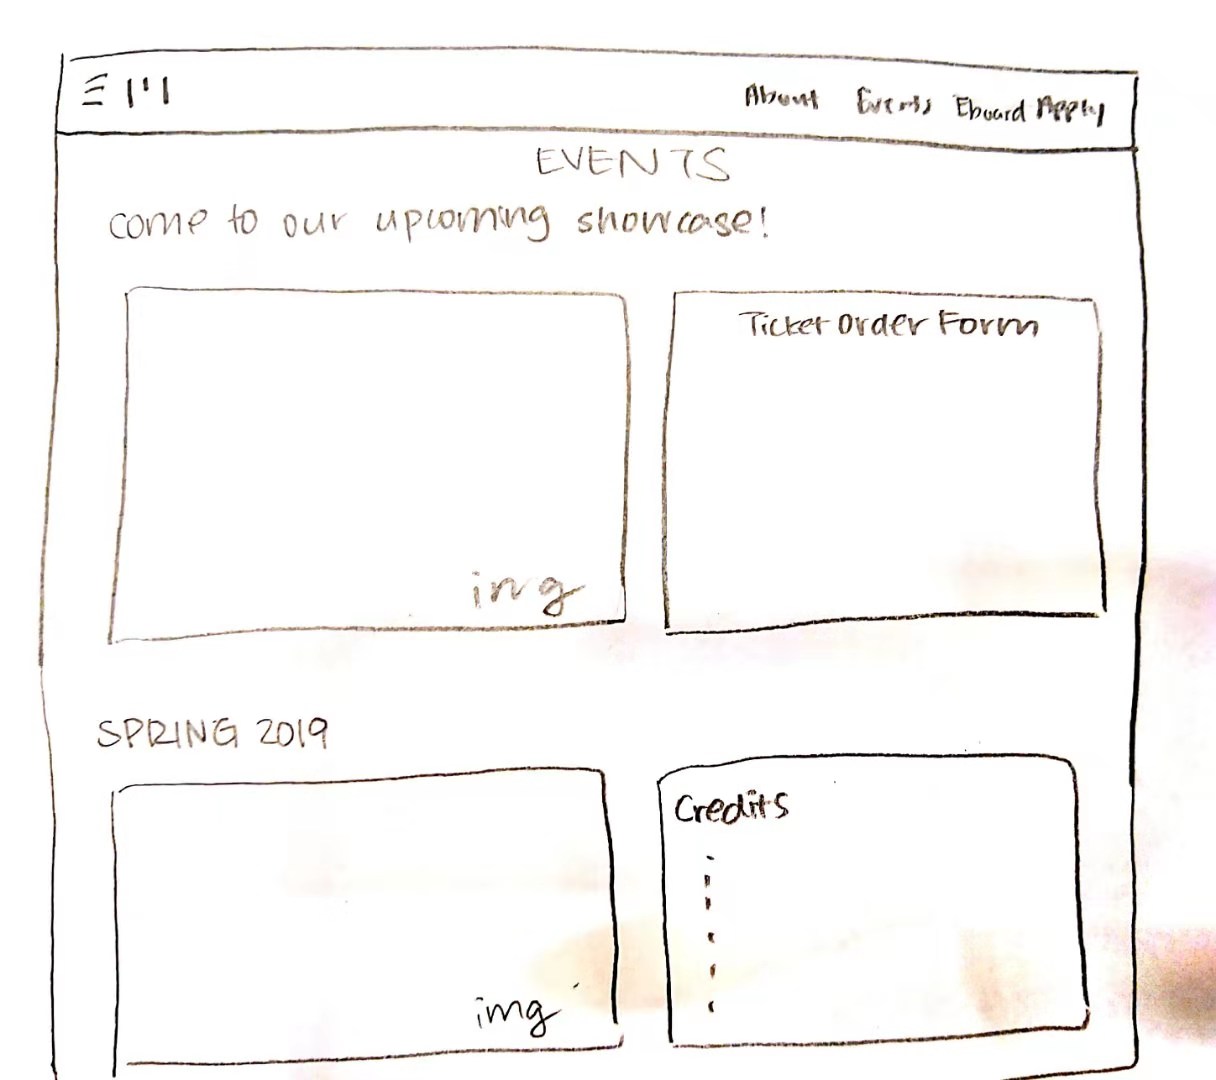 About Events Eboard Apply
EVENTS
come to our upcoming showcase!
Ticket Order Form
img
SPRING 2019
Credits
img